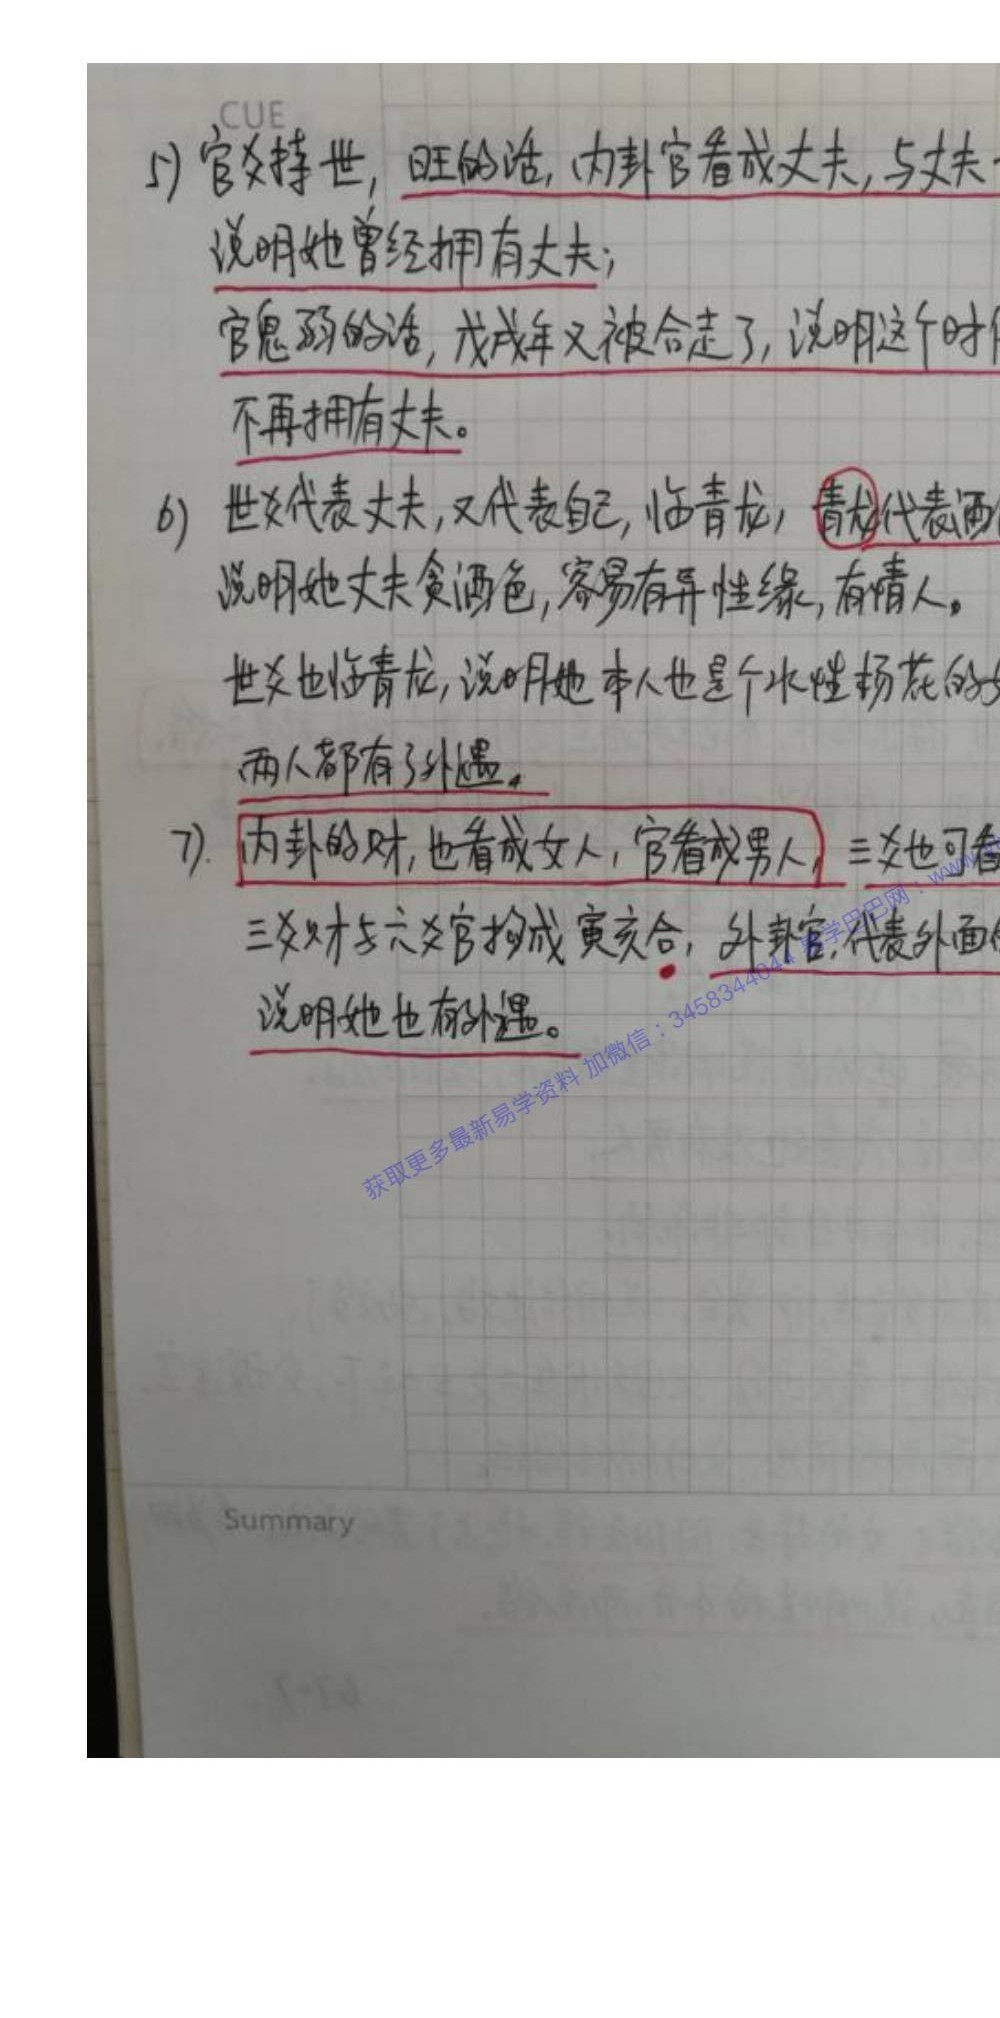 CUE
5) 官爻持世，旺的话，内卦官看成丈夫，与丈夫
说明她曾经拥有丈夫；
官鬼弱的话，戊戌年又被合走了，说明这个时
不再拥有丈夫。
6) 世爻代表丈夫，又代表自己，临青龙，青龙代表酒
说明她丈夫贪酒色，容易有异性缘，有情人。
世爻也临青龙，说明她本人也是个水性杨花的
两人都有了外遇。
7). 内卦的财，也看成女人，官看成男人，三爻也可看
三爻财与六爻官构成寅亥合，外卦官，代表外面
说明她也有外遇。
获取更多最新易学资料 加微信：3458344044 易学巴巴网：www.
Summary